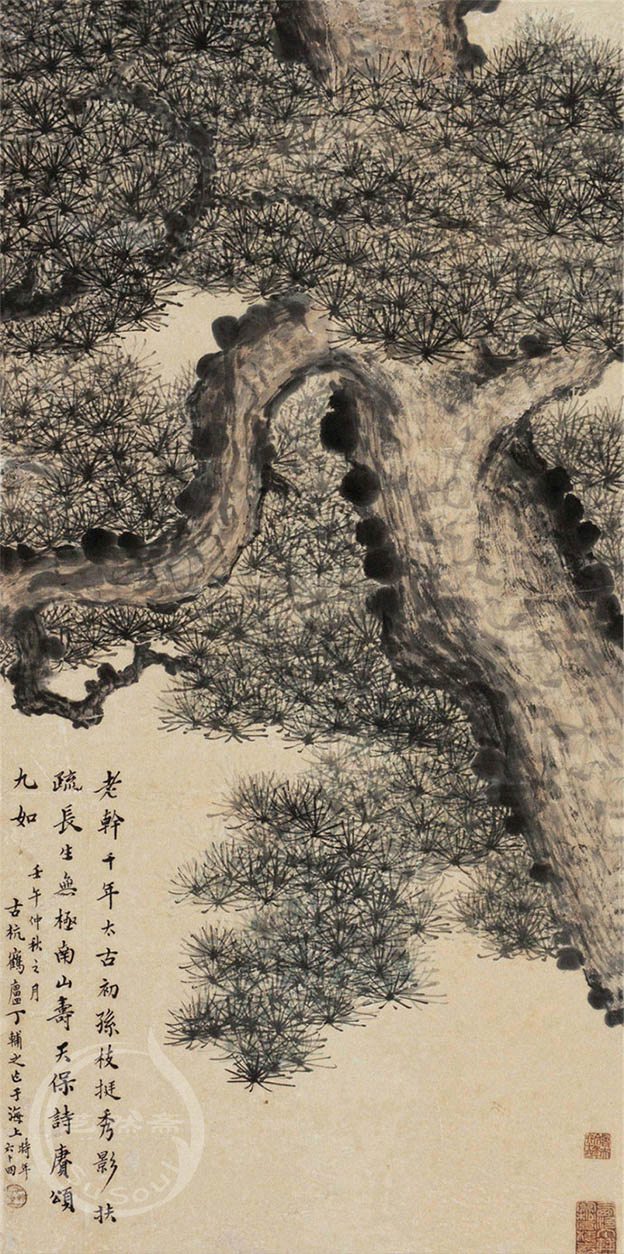 老幹千年太古初孫枝挺秀影扶
疏長生無極南山壽天保詩賡頌
九如
壬午仲秋之月
古杭鶴廬丁輔之作于海上時年
六十四
SuSoul